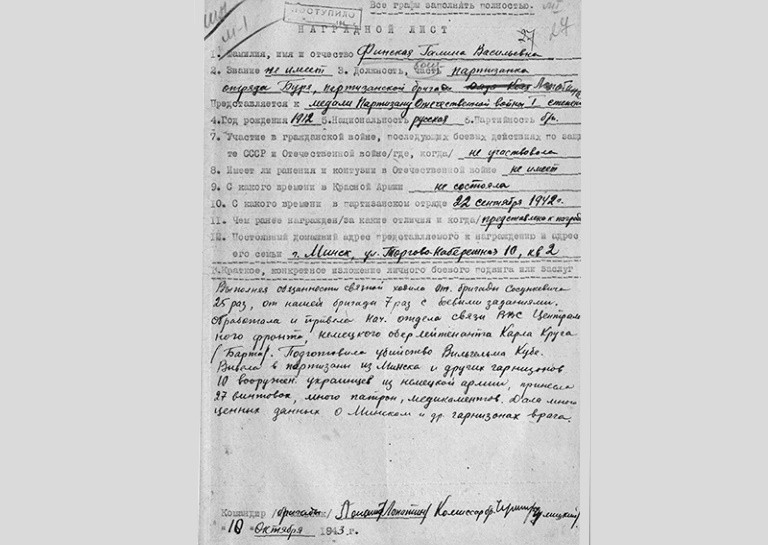 Все графы заполнять полностью.
ПОСТУПИЛО
27
НАГРАДНОЙ ЛИСТ
27
1. Фамилия, имя и отчество Финская Галина Васильевна
2. Звание не имеет 3. Должность, часть партизанка
отряда Буря, партизанской бригады
Представляется к медали Партизану Отечественной войны I степени
4. Год рождения 1912 5. Национальность русская 6. Партийность б/п.
7. Участие в гражданской войне, последующих боевых действиях по защи
те СССР и Отечественной войне/где, когда/ не участвовала
8. Имеет ли ранения и контузии в Отечественной войне не имеет
9. С какого времени в Красной Армии не состояла
10. С какого времени в партизанском отряде 22 сентября 1942 г.
11. Чем ранее награжден/за какие отличия и когда/ представлена к
12. Постоянный домашний адрес представляемого к награждению и адрес
его семьи г. Минск, ул. Торгово-Набережная 10, кв 2
Краткое, конкретное изложение личного боевого подвига или заслуг
Выполняя обязанности связной ходила от бригады
25 раз, от нашей бригады 7 раз с боевыми заданиями.
Обработала и привела нач. отдела связи ВВС Централь
ного фронта, немецкого оберлейтенанта Карла Круга
(Барта). Подготовила убийство Вильгельма Кубе.
Вывела в партизаны из Минска и других гарнизонов
10 вооружен. украинцев из немецкой армии, принесла
27 винтовок, много патрон, медикаментов. Дала много
ценных данных о Минском и др. гарнизонах врага.
Командир /бригады/ /Лопатин/ Комиссар бр.
"10" Октября 1943 г.